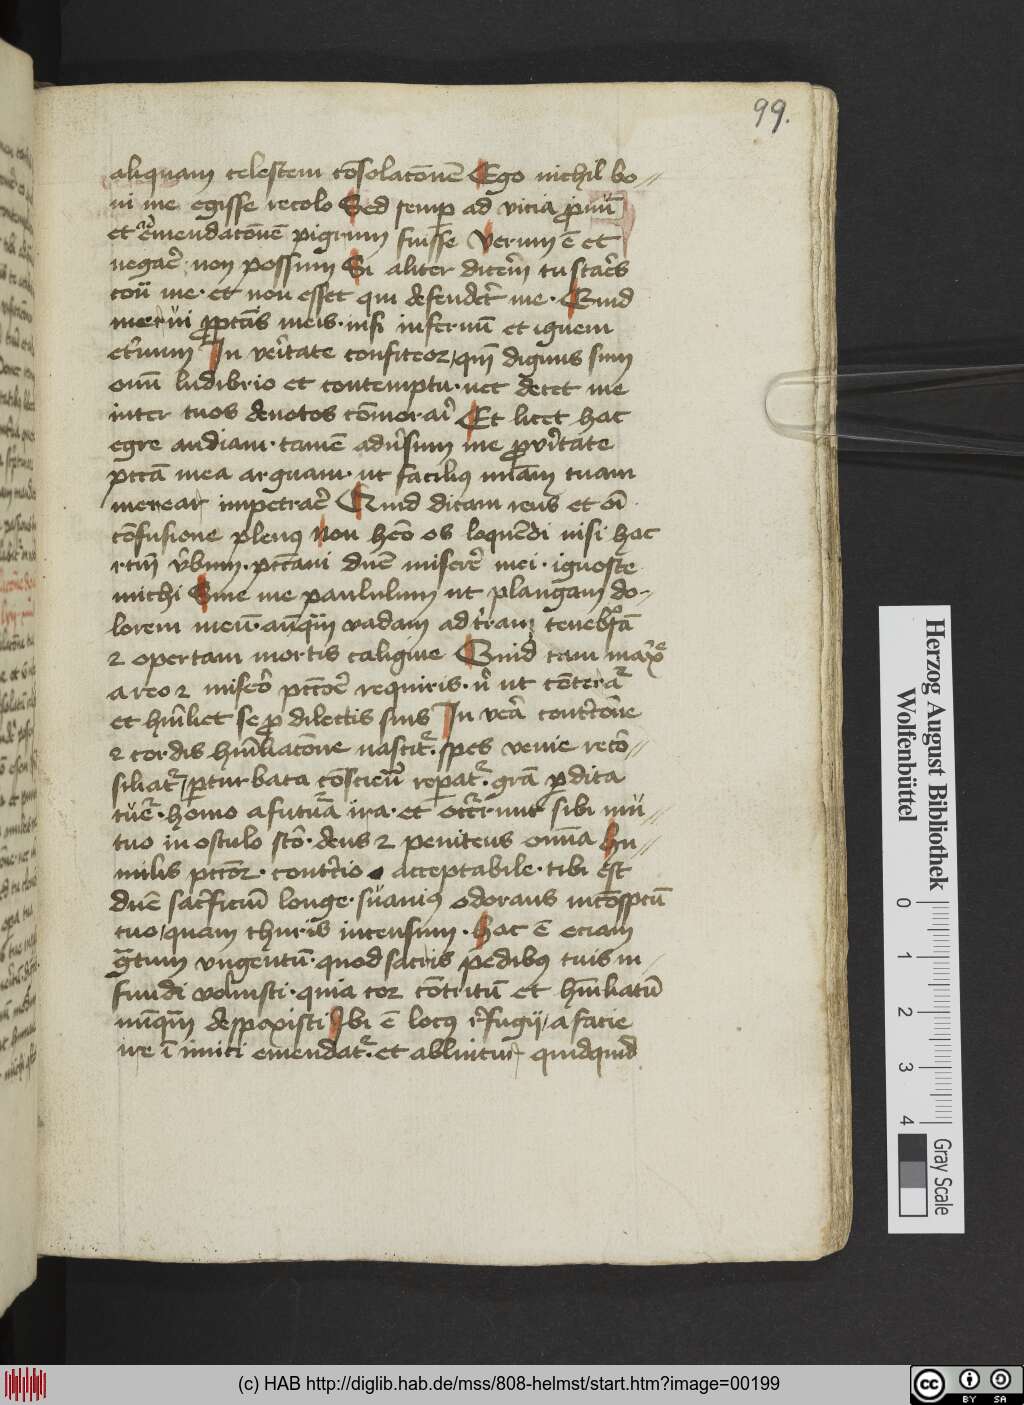 99.
aliquam celestem cōsolacōnē Ego nichil bo//
ni me egisse recolo Sed semp̄ ad vicia p̄nū
et emendacōnē pigrum fuisse Verum ē et
negar̄ non possum Si aliter dicer̄m tu star̄s
cōn̄ me · et non esset qui defender̄t me · Quid
merui p̄ p̄ctīs meis · nisi infernū et ignem
et̄num In veritate confiteor / qm̄ dignus sum
omī ludibrio et contemptu · nec decet me
inter tuos deuotos cōmorari Et licet hac
egre audiam · tamē adūsum me p̄ v̄itate
pctā mea arguam · ut faciliꝰ miā̄m tuam
merear impetrar̄ Quid dicam reus et oī
cōfusione plenꝰ non hēo os loquēdi nisi hoc
tm̄ v̄bum · pctāui dn̄e miserēr̄ mei · ignosce
michi Sine me paululum ut plangam do-
lorem meū · anq̄m vadam ad t̄ram tenebsā
⁊ opertam mortis caligine Quid tam max̄e
a reo ⁊ misero pctōr̄ requiris · n̄ ut cōterat̄
et hūiliet se p̄ delictis suis In vera contc̄one
⁊ cordis hūiliacōne nascit̄ · spes venie recō//
siliat̄ / pturbata cōsciencia repat̄ · grā pdita
tuet̄ · homo a futura ira · et occr̄runt sibi mu//
tuo in osculo scō · deus ⁊ penitens omnia Hu//
milis pctōꝝ · contc̄io acceptabile · tibi est
dn̄e sacrificiū longe · suauiꝰ odorans in cōspctū
tuo / quam thuris incensum · Hoc ē eciam
gr̄tum vngentū · quod sacris pedibꝰ tuis in-
fundi voluisti · quia cor cōtritū et hūiliatū
nūq̄m despexisti Ibi ē locꝰ r̄fugij / a facie
ire īimici emendat̄ · et abluitur quidquid
Herzog August Bibliothek
Wolfenbüttel
0 1 2 3 4
Gray Scale
(c) HAB http://diglib.hab.de/mss/808-helmst/start.htm?image=00199
cc BY SA